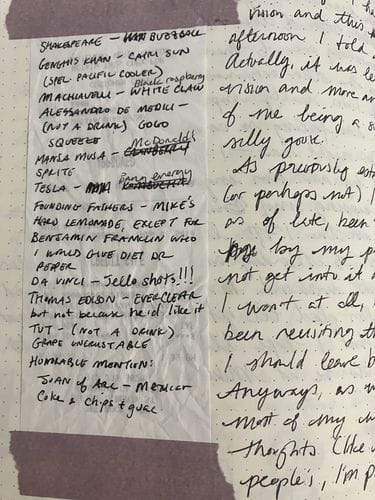 SHAKESPEARE - BUZZBALL
GENGHIS KHAN - CAPRI SUN
(SPEC. PACIFIC COOLER)
Black raspberry
MACHIAVELLI - WHITE CLAW
ALESSANDRO DE MEDICI -
(NOT A DRINK) GOGO
SQUEEZE
McDonald's
MANSA MUSA - CRANBERRY
SPRITE
energy
TESLA - KOMBUCHA
FOUNDING FATHERS - MIKE'S
HARD LEMONADE, EXCEPT FOR
BENJAMIN FRANKLIN WHO
I WOULD GIVE DIET DR
PEPPER
DA VINCI - Jello shots!!!
THOMAS EDISON - EVERCLEAR
but not because he'd like it
TUT - (NOT A DRINK)
GRAPE UNCRUSTABLE
HONORABLE MENTION:
JOAN OF ARC - MEXICAN
Coke & chips + guac
vision and this
afternoon I told
Actually, it was le
vision and more an
of me being a s
silly goose.
As previously est
(or perhaps not) I
as of late, been
by my p
not get into it
I want at all,
been revisiting th
I should leave b
Anyways, as w
most of my
thoughts. (like
people's, I'm p